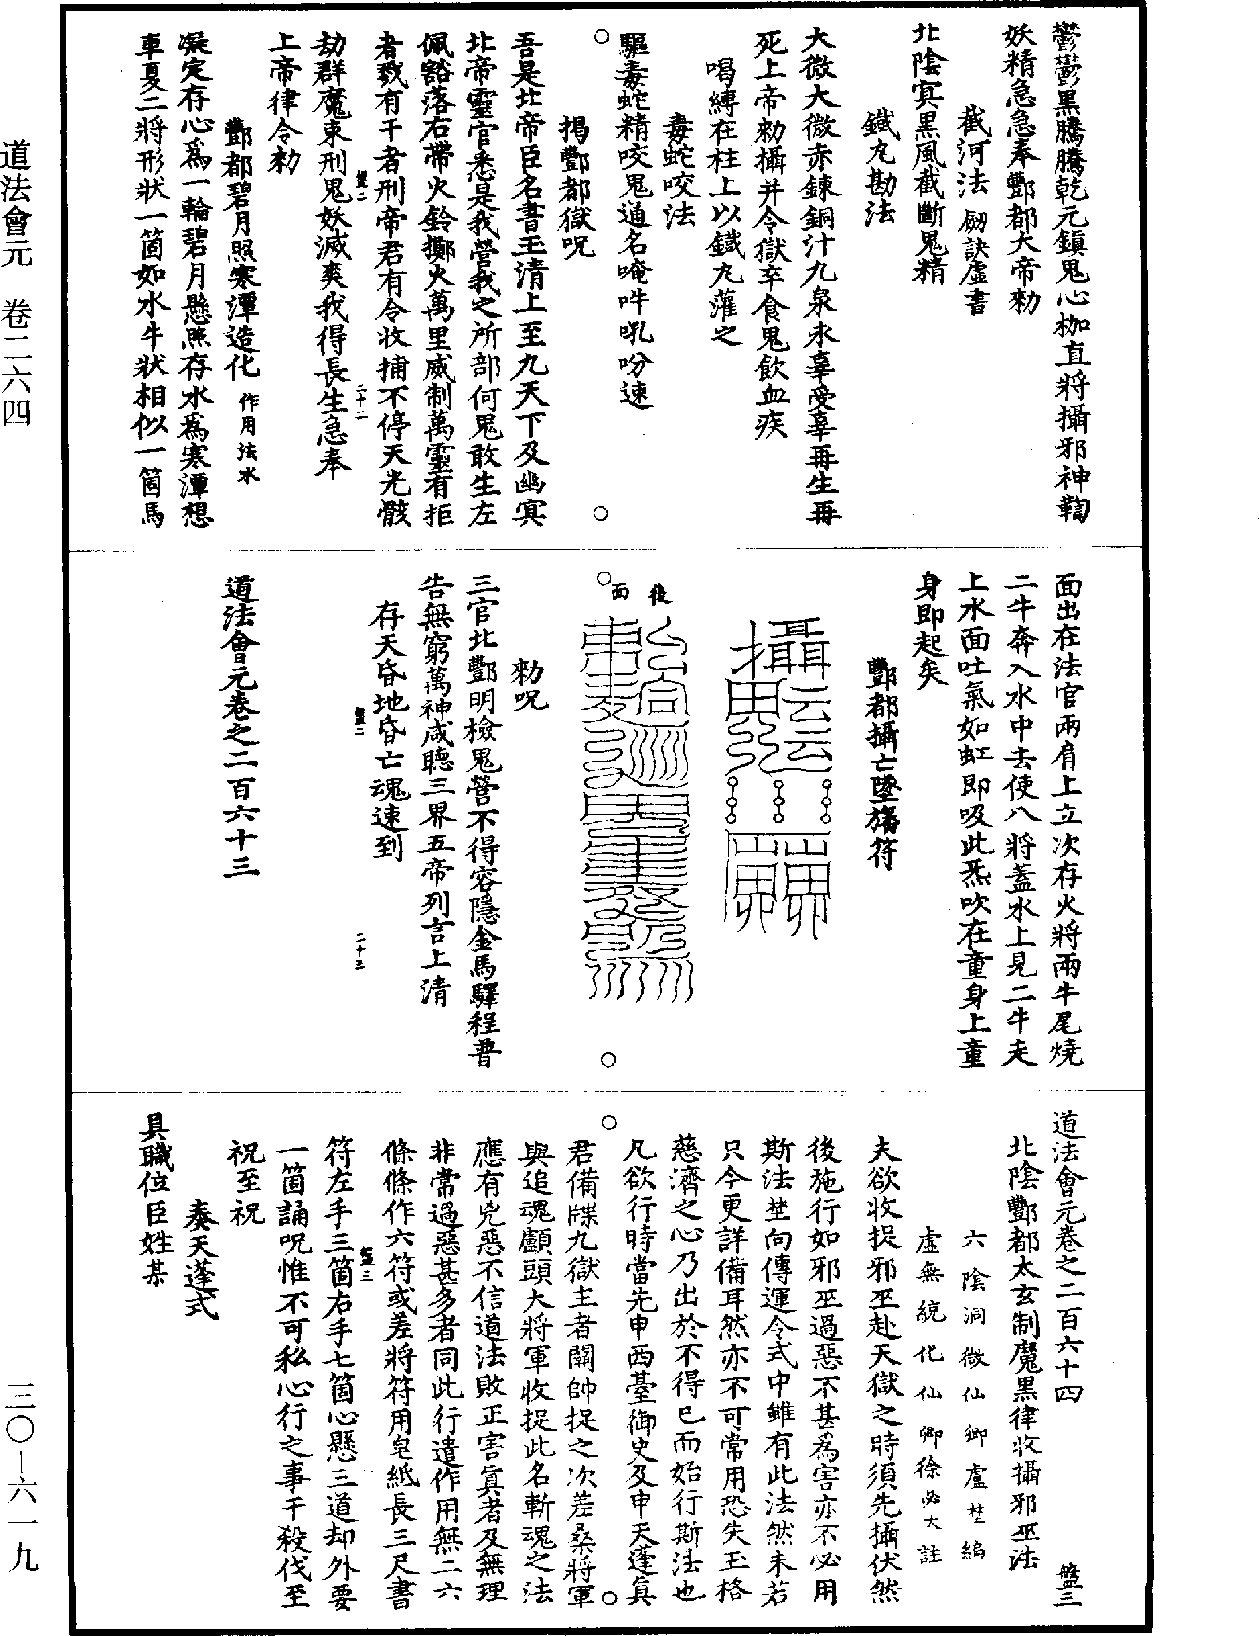 鬱鬱黑騰騰乾元鎮鬼心枷直將攝邪神鞫
妖精急急奉酆都大帝勑
截河法 劒訣虛書
北陰寘黑風截斷鬼精
鐵丸勘法
大微大微赤鍊銅汁九泉永辜受辜再生再
死上帝勑攝并令獄卒食鬼飲血疾
喝縛在柱上以鐵丸灌之
毒蛇咬法
驅毒蛇精咬鬼通名唵吽吼吩速
揭酆都獄呪
吾是北帝臣名書玉清上至九天下及幽寘
北帝靈官悉是我營我之所部何鬼敢生左
佩豁落右帶火鈴擲火萬里威制萬靈有拒
者戮有干者刑帝君有令收捕不停天光骸
盤二 二十二
劫群魔束刑鬼妖滅爽我得長生急奉
上帝律令勑
酆都碧月照寒潭造化 作用法水
凝定存心爲一輪碧月懸照存水爲寒潭想
車夏二將形狀一箇如水牛狀相似一箇馬
面出在法官兩肩上立次存火將兩牛尾燒
二牛奔入水中去使八將蓋水上見二牛走
上水面吐氣如虹即吸此炁吹在童身上童
身即起矣
酆都攝亡墜旛符
後面
勑呪
三官北酆明檢鬼營不得容隱金馬驛程普
告無窮萬神咸聽三界五帝列言上清
存天昏地昏亡魂速到
盤二 二十三
道法會元卷之二百六十三
道法會元卷之二百六十四 盤三
北陰酆都太玄制魔黑律收攝邪巫法
六陰洞微仙卿盧埜編
虛無統化仙卿徐必大註
夫欲收捉邪巫赴天獄之時須先攝伏然
後施行如邪巫過惡不甚爲害亦不必用
斯法埜向傳運令式中雖有此法然未若
只今更詳備耳然亦不可常用恐失玉格
慈濟之心乃出於不得已而始行斯法也
凡欲行時當先申西臺御史及申天蓬眞
君備牒九獄主者關帥捉之次差桑將軍
與追魂顱頭大將軍收捉此名斬魂之法
應有兇惡不信道法敗正害眞者及無理
非常過惡甚多者同此行遣作用無二六
條條作六符或差將符用皂紙長三尺書
盤三
符左手三箇右手七箇心懸三道却外要
一箇誦呪惟不可私心行之事干殺伐至
祝至祝
奏天蓬式
具職位臣姓某
道法會元 卷二六四
三〇—六一九